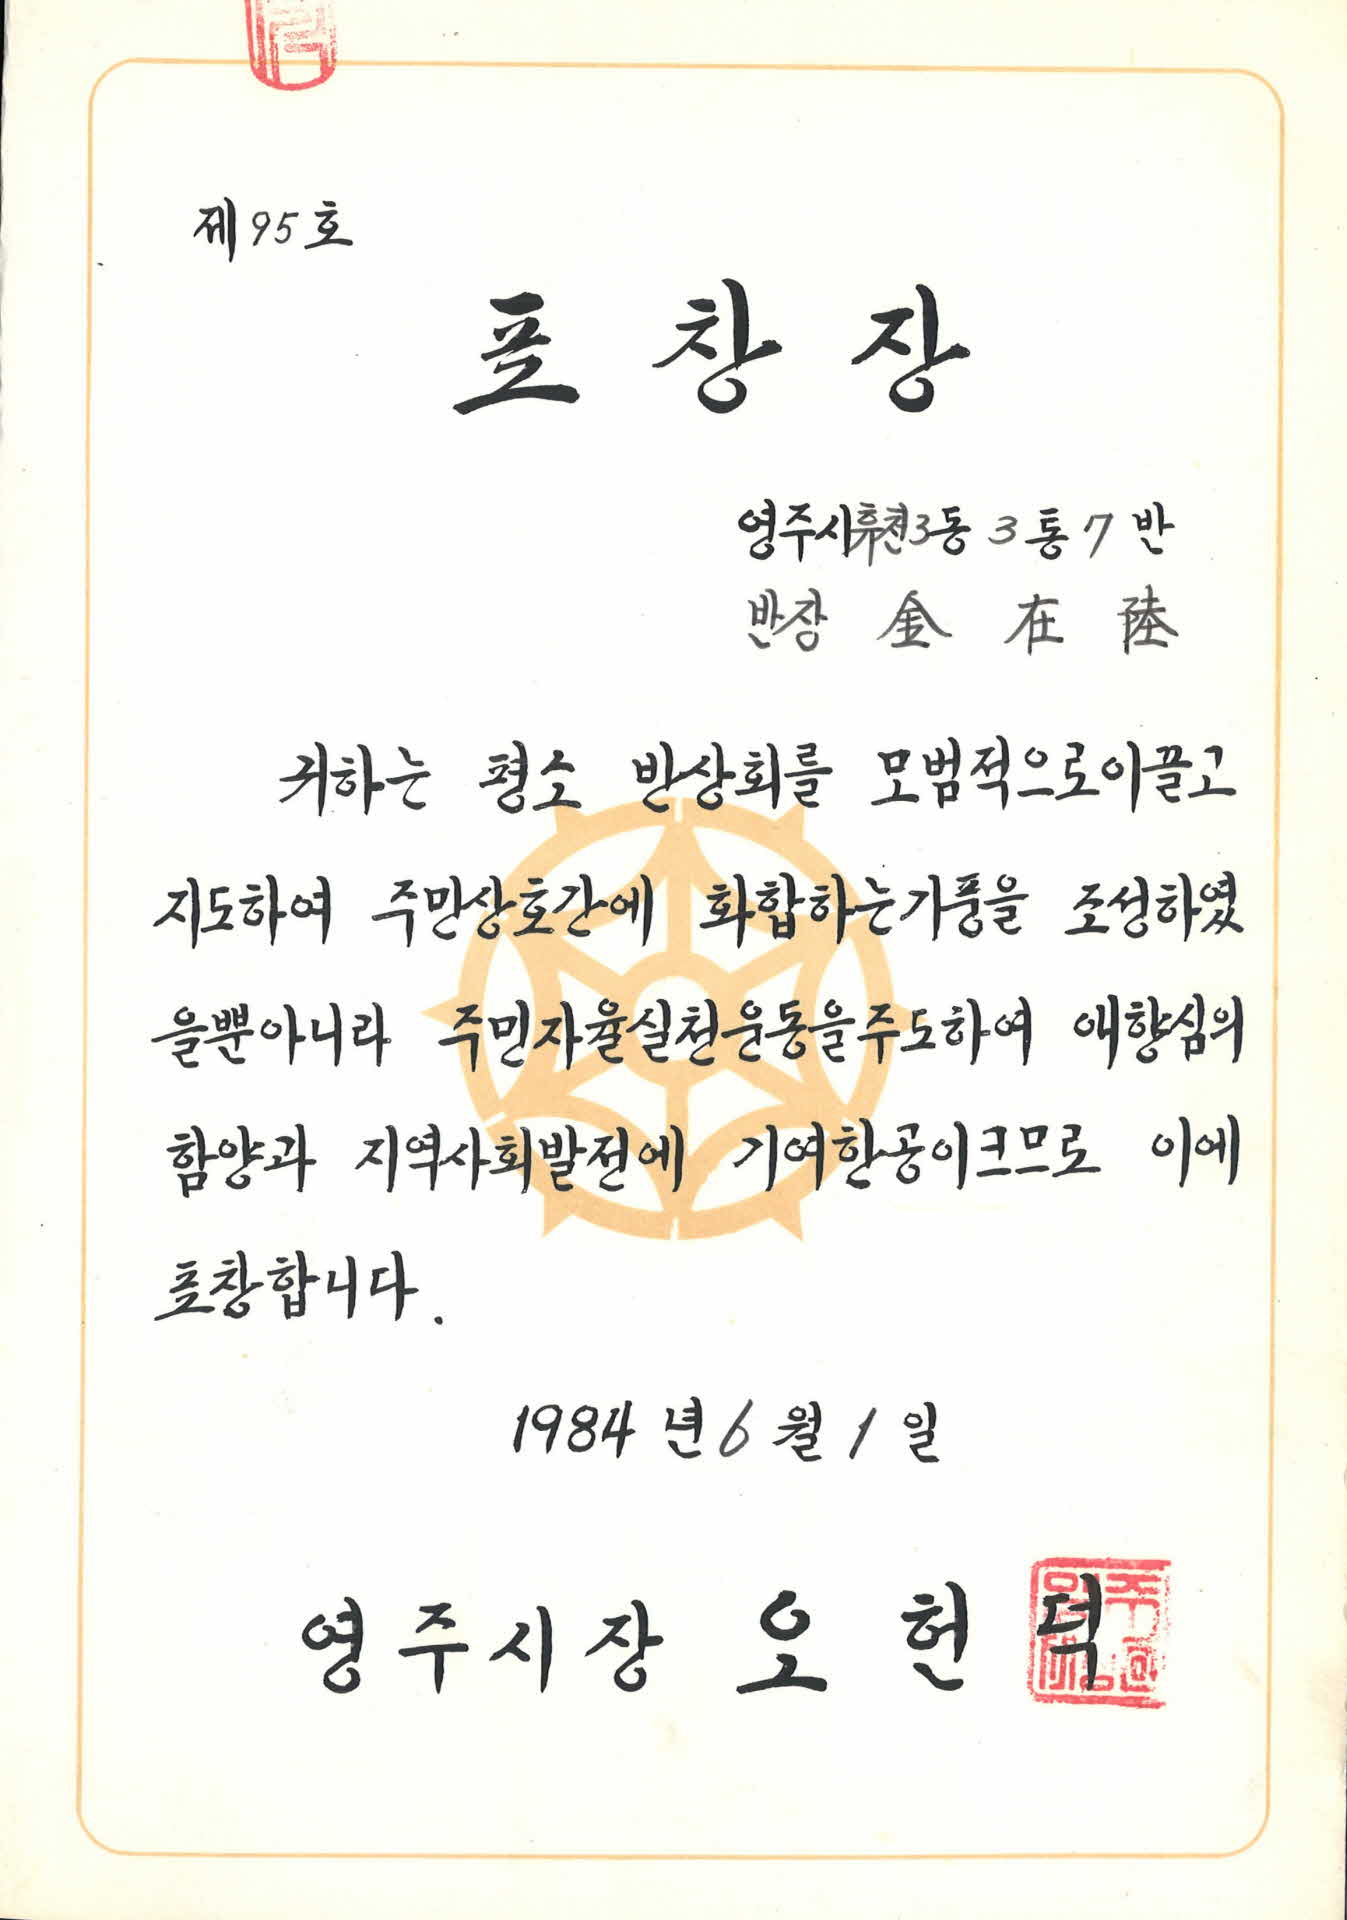 제95호
포창장
영주시휴천3동 3통 7반
반장 金在陸
귀하는 평소 반상회를 모범적으로이끌고
지도하여 주민상호간에 화합하는기풍을 조성하였
을뿐아니라 주민자율실천운동을주도하여 애향심의
함양과 지역사회발전에 기여한공이크므로 이에
표창합니다.
1984년 6월 1일
영주시장 오헌덕